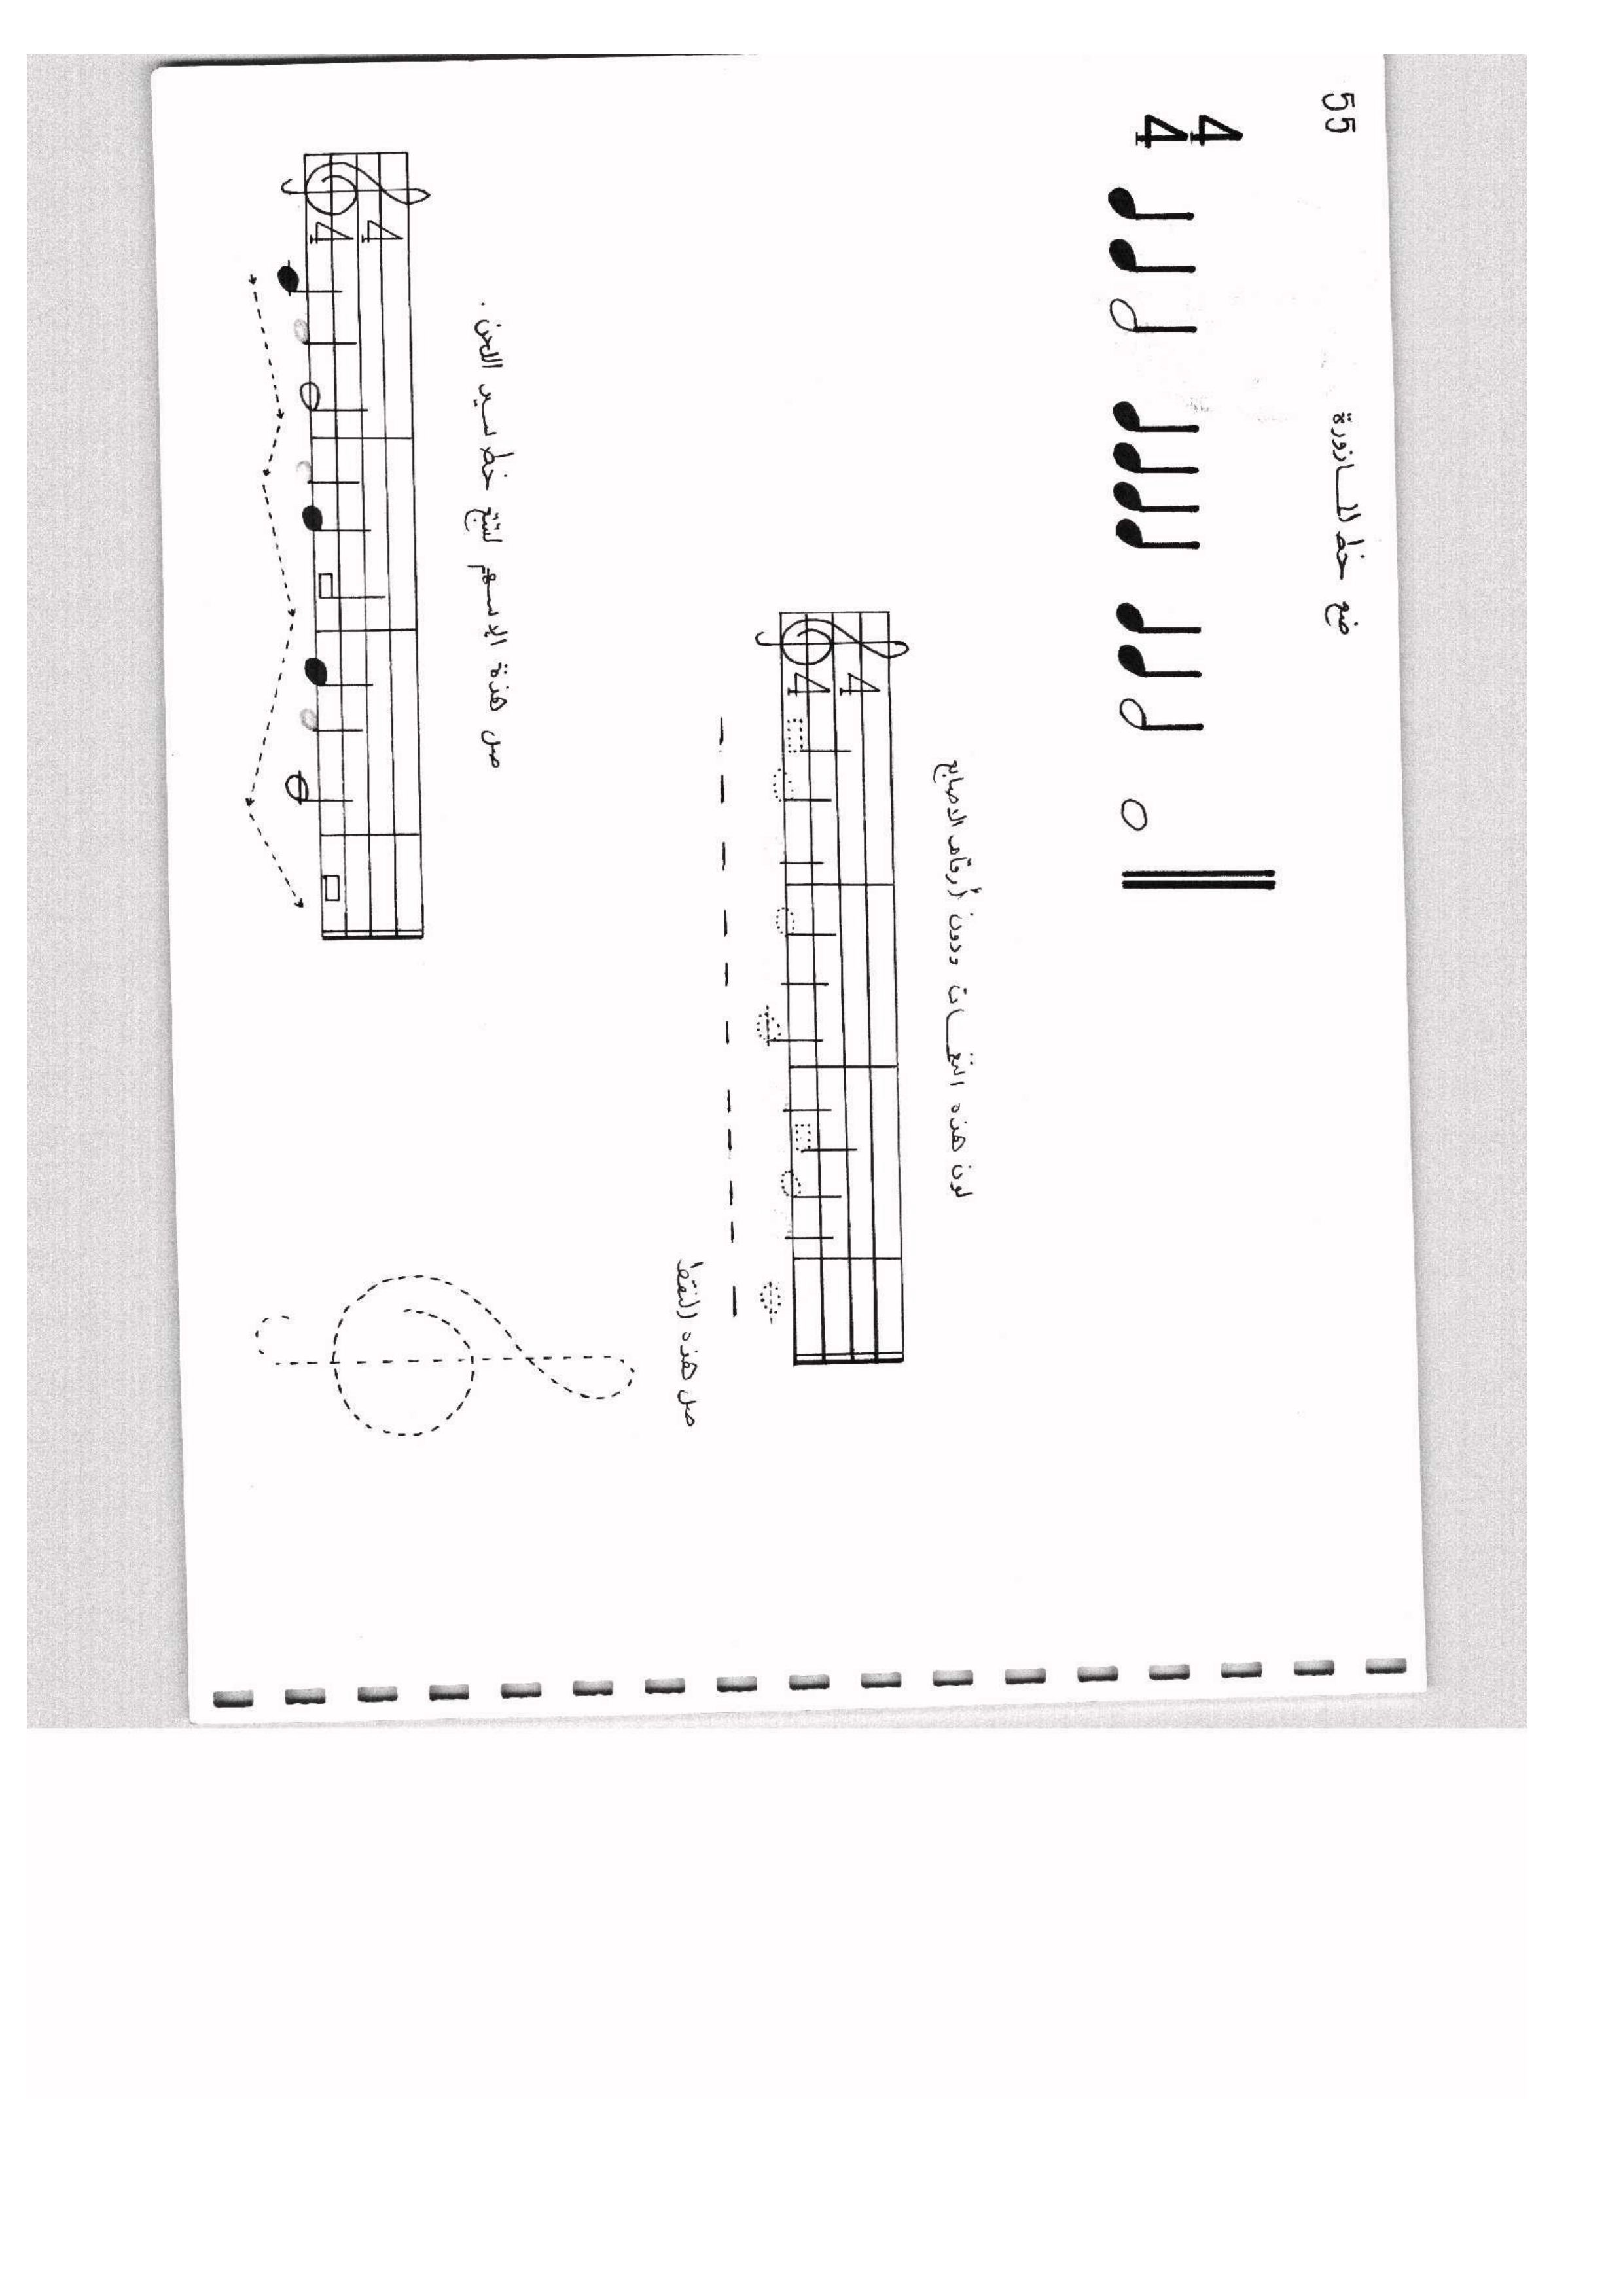 55
ضع خط المازورة
4
4
لون هذه النغمات ودون أرقام الاصابع
4
4
صل هذه النقط
صل هذة الاسهم لتتبع خط سير اللحن .
4
4